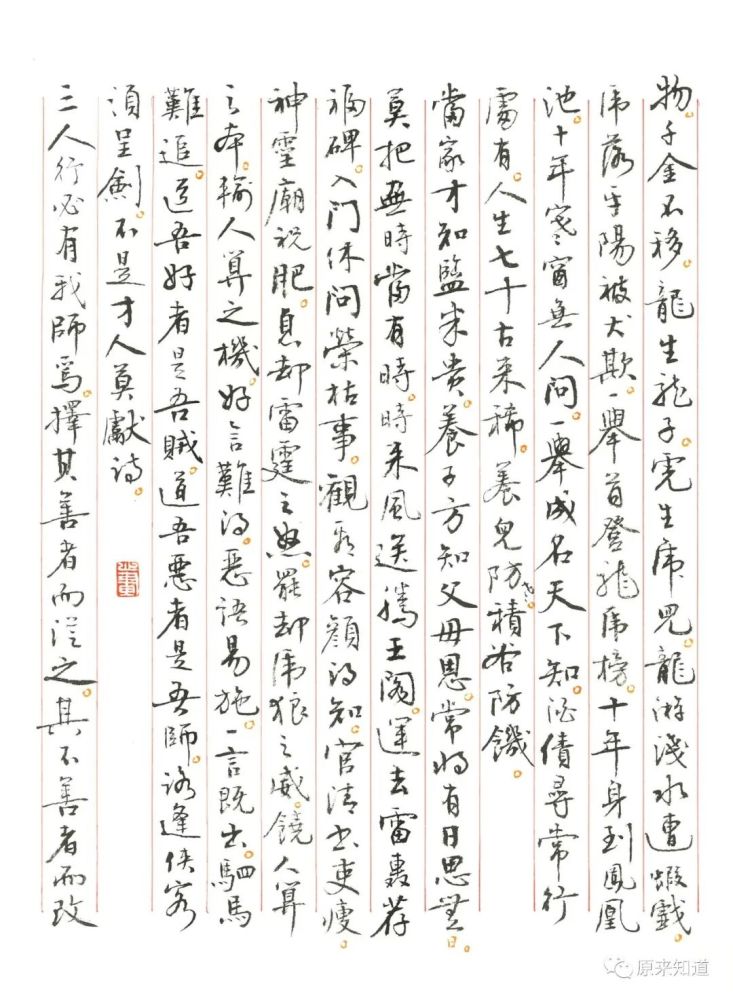 物。千金不移。龍生龍子。虎生虎兒。龍游淺水遭蝦戲。
虎落平陽被犬欺。一舉首登龍虎榜。十年身到鳳凰
池。十年寒窗無人問。一舉成名天下知。酒債尋常行
處有。人生七十古來稀。養兒防老。積谷防饑。
當家才知鹽米貴。養子方知父母恩。常將有日思無日。
莫把無時當有時。時來風送騰王閣。運去雷轟荐
福碑。入門休問榮枯事。觀看容顏得知。官清書吏瘦。
神靈廟祝肥。息却雷霆之怒。罷却虎狼之威。饒人算
之本。輸人算之機。好言難得。惡語易施。一言既出。駟馬
難追。道吾好者是吾賊。道吾惡者是吾師。路逢俠客
須呈劍。不是才人莫獻詩。
三人行必有我師焉。擇其善者而從之。其不善者而改
原来知道